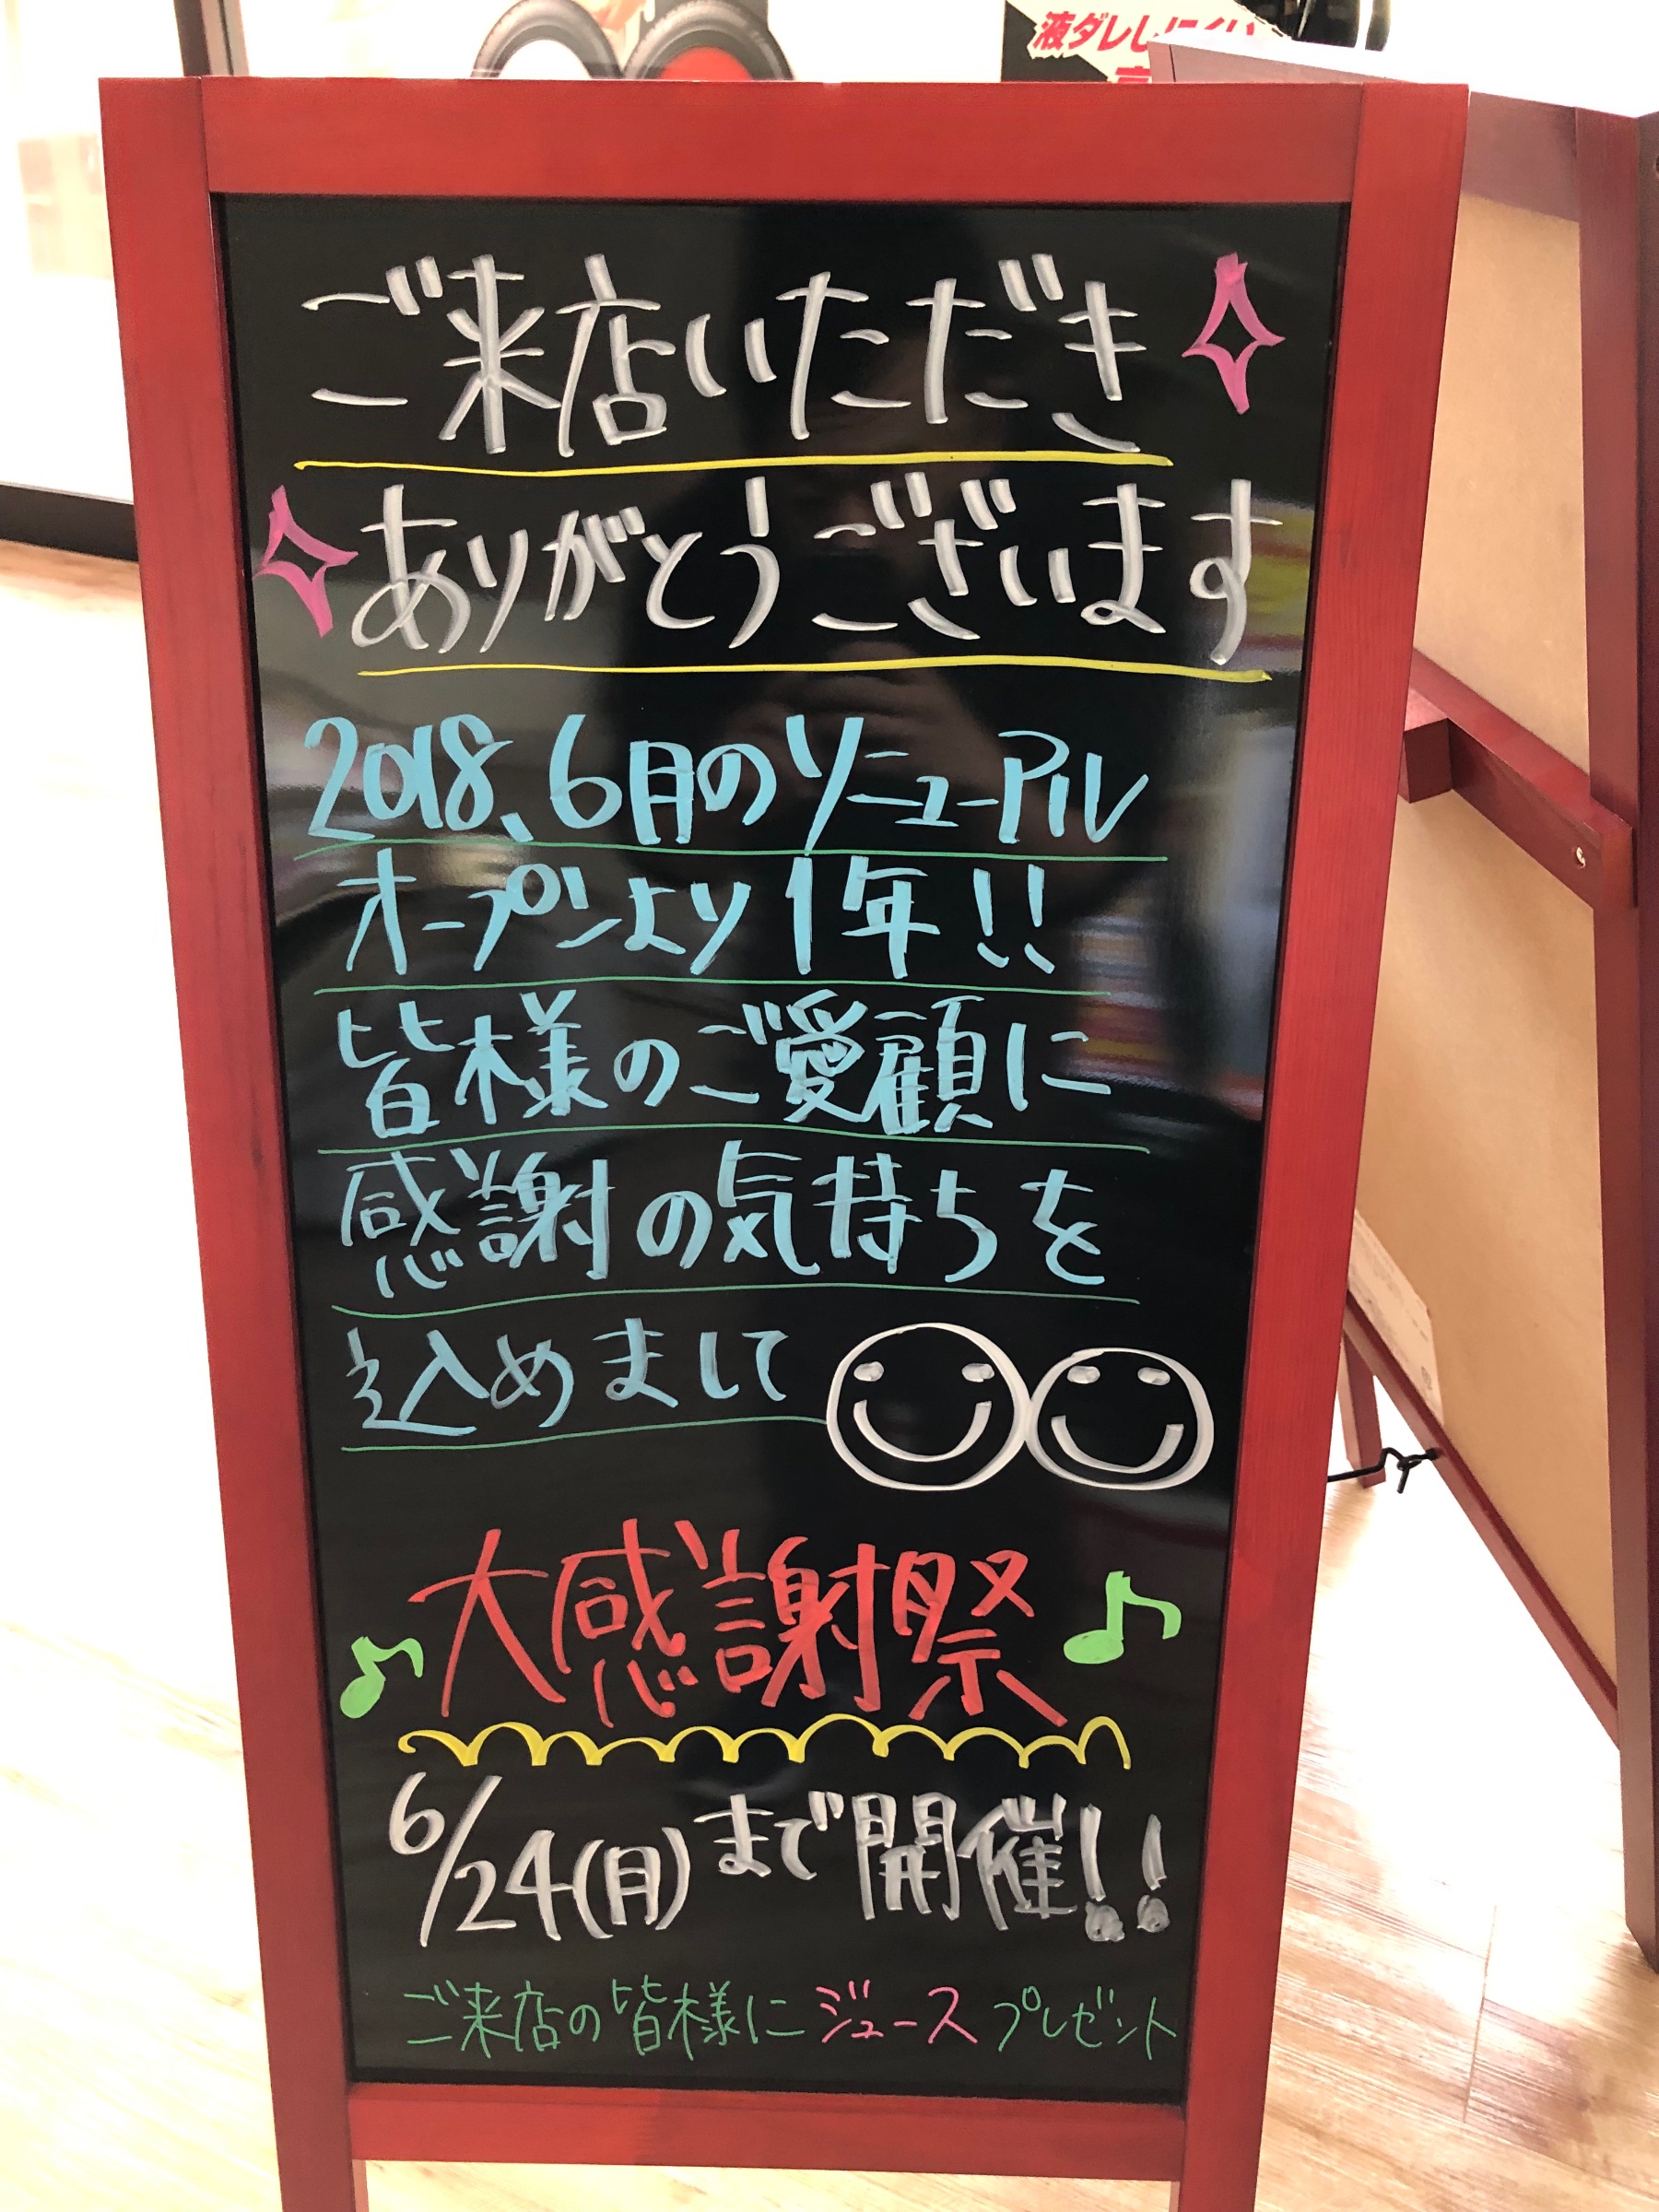 液ダレしにくい
ご来店いただき
ありがとうございます
2018、6月のリニューアル
オープンより1年!!
皆様のご愛顧に
感謝の気持ちを
込めまして
大感謝祭
6/24(月)まで開催!!
ご来店の皆様にジュースプレゼント